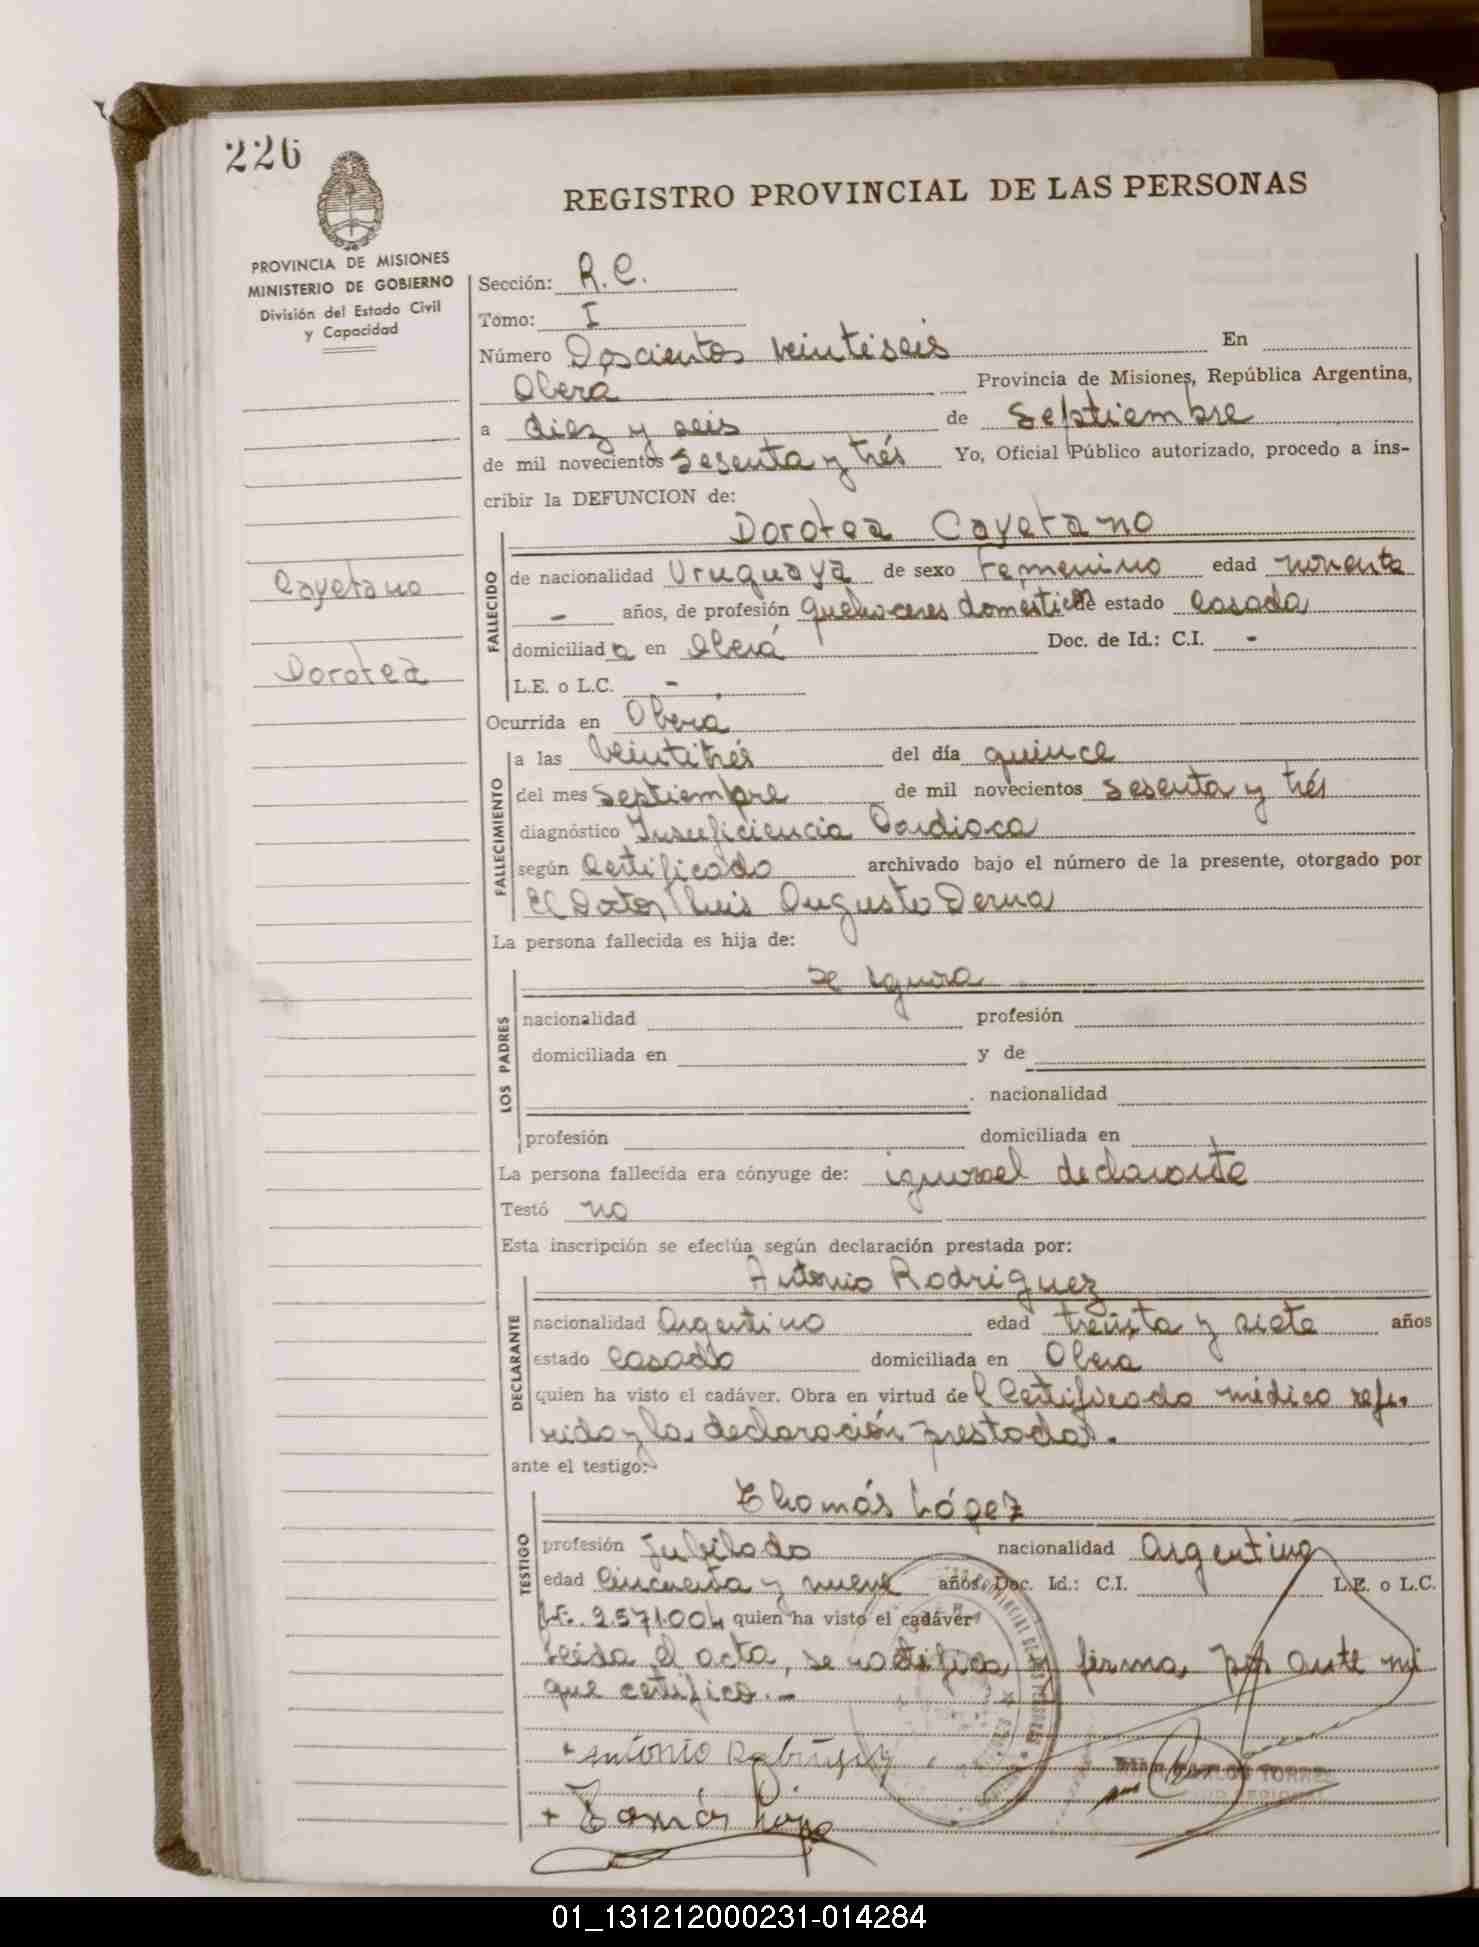 226
REGISTRO PROVINCIAL DE LAS PERSONAS
PROVINCIA DE MISIONES
MINISTERIO DE GOBIERNO
División del Estado Civil
y Capacidad
Sección: R.C.
Tomo: I
Número Doscientos veintiseis En
Oberá Provincia de Misiones, República Argentina,
a diez y seis de Septiembre
de mil novecientos sesenta y trés Yo, Oficial Público autorizado, procedo a ins-
cribir la DEFUNCION de:
Dorotea Cayetano
Cayetano
Dorotea
FALLECIDO
de nacionalidad Uruguaya de sexo Femenino edad noventa
- años, de profesión quehaceres domésticos de estado Casada
domiciliada en Oberá Doc. de Id.: C.I. -
L.E. o L.C. -
Ocurrida en Oberá
FALLECIMIENTO
a las veintitrés del día quince
del mes Septiembre de mil novecientos sesenta y trés
diagnóstico Insuficiencia Cardiaca
según Certificado archivado bajo el número de la presente, otorgado por
El Doctor Luis Augusto Derna
La persona fallecida es hija de:
LOS PADRES
se ignora
nacionalidad profesión
domiciliada en y de
nacionalidad
profesión domiciliada en
La persona fallecida era cónyuge de: ignora el declarante
Testó no
Esta inscripción se efectúa según declaración prestada por:
DECLARANTE
Antonio Rodriguez
nacionalidad Argentino edad treinta y siete años
estado Casado domiciliada en Oberá
quien ha visto el cadáver. Obra en virtud del Certificado médico refe-
rido y la declaración prestada.
ante el testigo:
TESTIGO
Thomás López
profesión Jubilado nacionalidad Argentino
edad Cincuenta y nueve años Doc. Id.: C.I. L.E. o L.C.
L.E. 2.571.004 quien ha visto el cadáver
Leída el acta, se ratifica y firma por ante mi
que certifico.-
+ Antonio
+ Tomás López
CARLOS TORRES
01_131212000231-014284